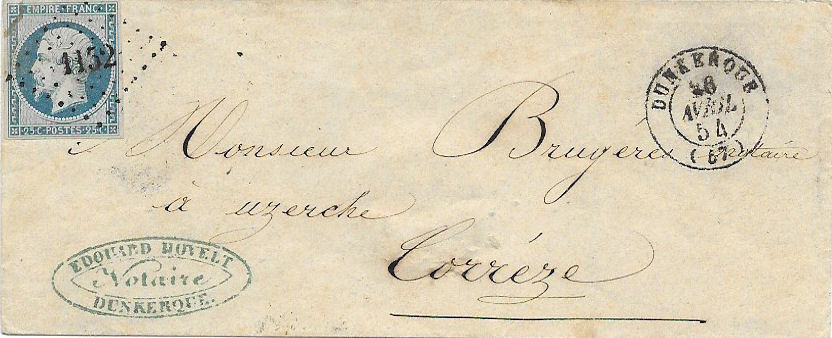 EMPIRE FRANC
1132
25C POSTES 25C
DUNKERQUE
26
AVRIL
54
(57)
Monsieur Brugére notaire
à uzerche
Corréze
EDOUARD HOVELT
Notaire
DUNKERQUE.